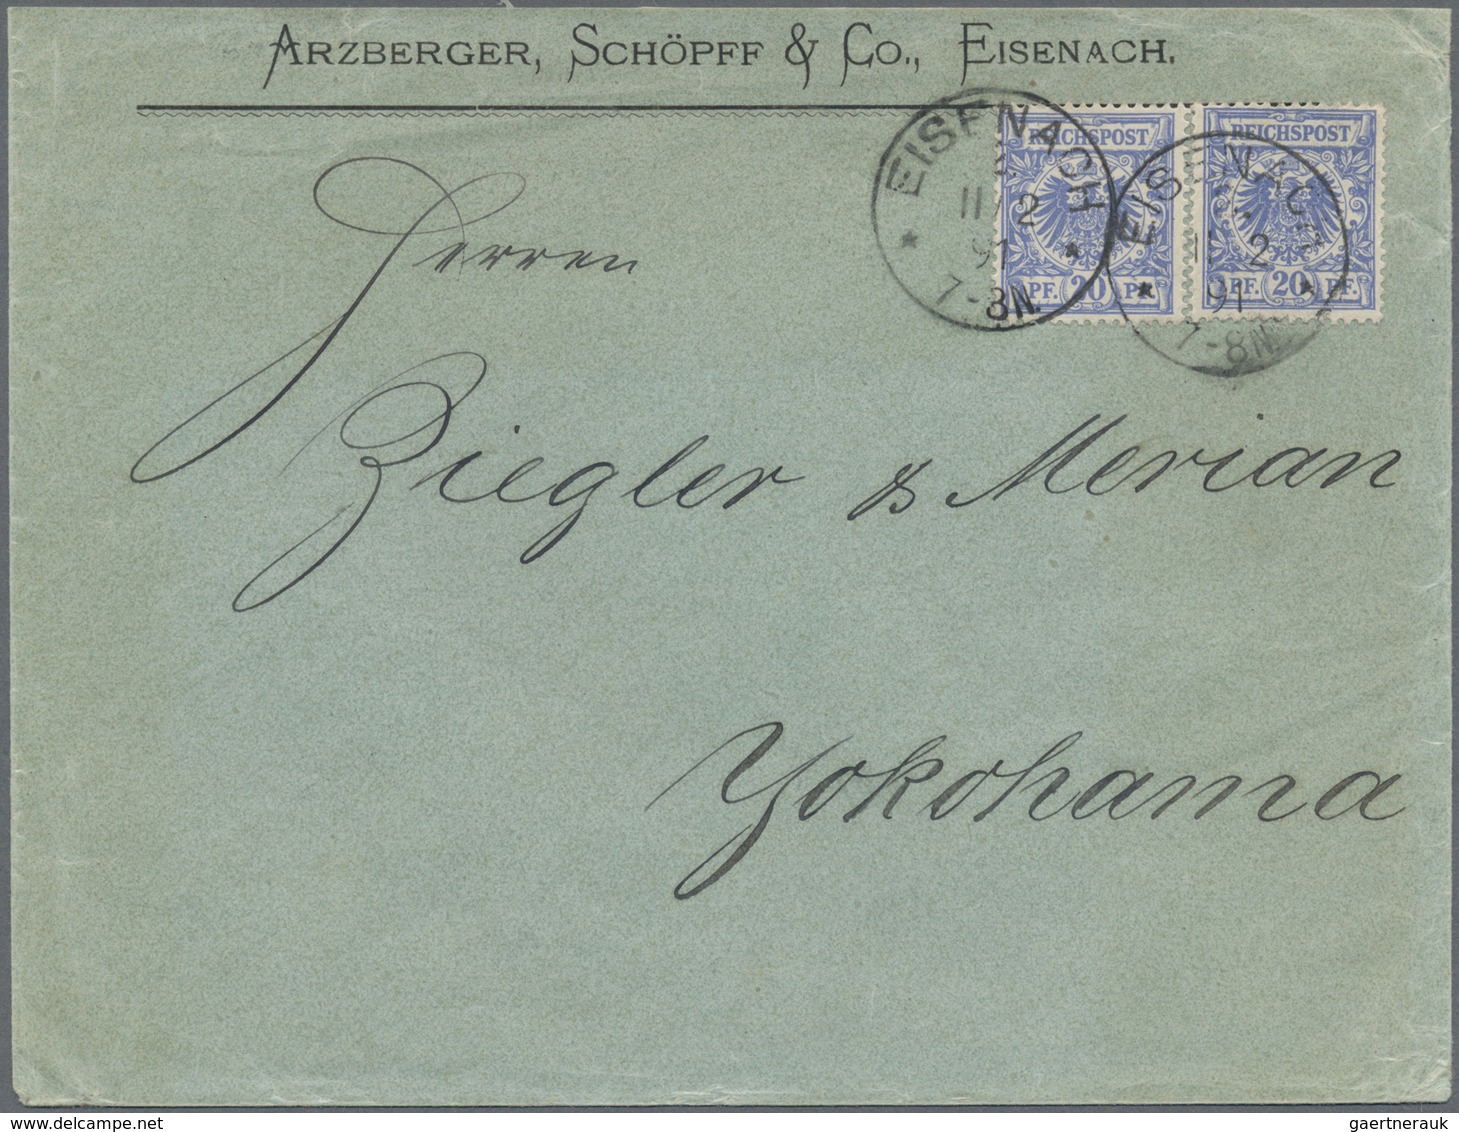 ARZBERGER, SCHÖPFF & Co., EISENACH.
REICHSPOST
REICHSPOST
EISENACH
11 2
91
7-8N.
EISENACH
11 2
91
7-8N.
PF. 20 PF.
PF. 20 PF.
Herren
Ziegler & Merian
Yokohama
www.delcampe.net
gaertnerauk